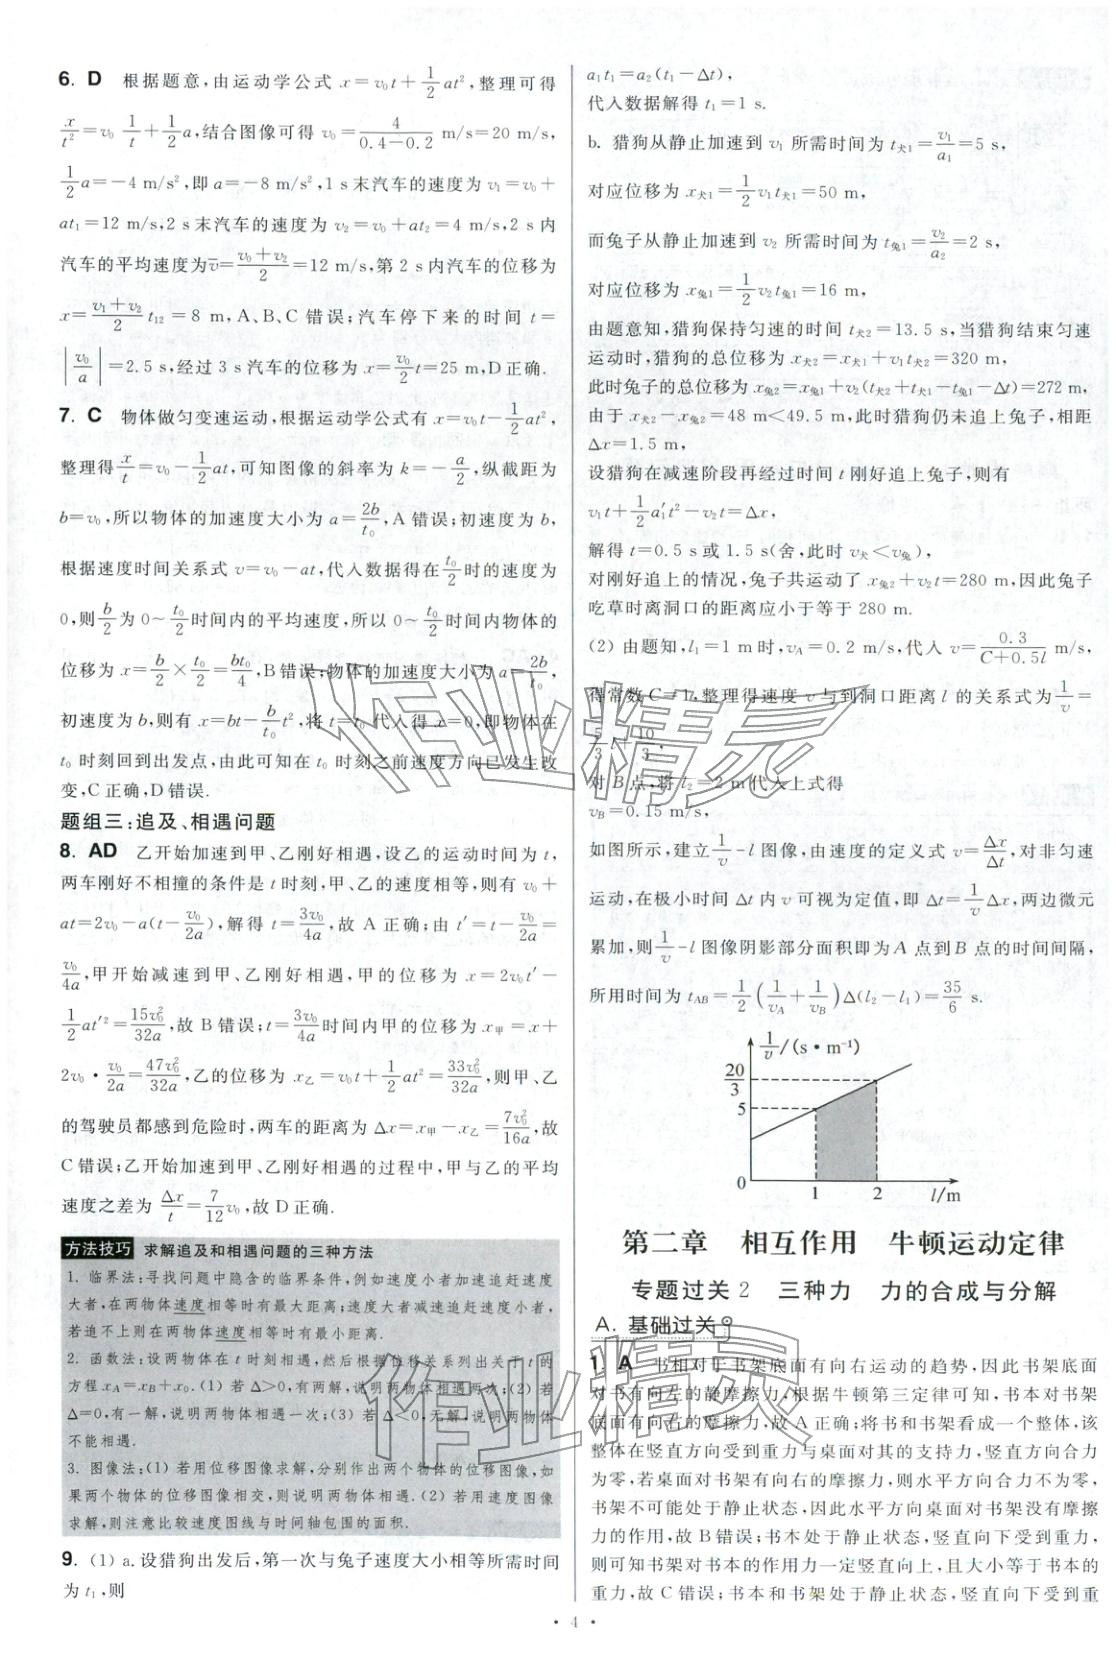 6. D 根据题意,由运动学公式 x=v₀t+1/2 at²,整理可得
x/t²=v₀ 1/t+1/2 a,结合图像可得 v₀=4/(0.4-0.2) m/s=20 m/s,
1/2 a=-4 m/s²,即 a=-8 m/s²,1 s末汽车的速度为 v₁=v₀+
at₁=12 m/s,2 s末汽车的速度为 v₂=v₀+at₂=4 m/s,2 s内
汽车的平均速度为v̄=(v₀+v₂)/2=12 m/s,第 2 s内汽车的位移为
x=(v₁+v₂)/2 t₁₂=8 m,A、B、C 错误;汽车停下来的时间 t=
|v₀/a|=2.5 s,经过 3 s汽车的位移为 x=v₀/2 t=25 m,D正确.
7. C 物体做匀变速运动,根据运动学公式有 x=v₀t-1/2 at²,
整理得x/t=v₀-1/2 at,可知图像的斜率为 k=-a/2,纵截距为
b=v₀,所以物体的加速度大小为 a=2b/t₀,A 错误;初速度为 b,
根据速度时间关系式 v=v₀-at,代入数据得在t₀/2时的速度为
0,则b/2为 0~t₀/2时间内的平均速度,所以 0~t₀/2时间内物体的
位移为 x=b/2×t₀/2=bt₀/4,B错误;物体的加速度大小为 a=2b/t₀,
初速度为b,则有 x=bt-b/t₀ t²,将 t=t₀ 代入得 x=0,即物体在
t₀ 时刻回到出发点,由此可知在 t₀ 时刻之前速度方向已发生改
变,C正确,D错误.
题组三:追及、相遇问题
8. AD 乙开始加速到甲、乙刚好相遇,设乙的运动时间为 t,
两车刚好不相撞的条件是 t 时刻,甲、乙的速度相等,则有 v₀+
at=2v₀-a(t-v₀/2a),解得 t=3v₀/4a,故 A 正确;由 t′=t-v₀/2a=
v₀/4a,甲开始减速到甲、乙刚好相遇,甲的位移为 x=2v₀t′-
1/2 at′²=15v₀²/32a,故 B 错误;t=3v₀/4a时间内甲的位移为 x甲=x+
2v₀·v₀/2a=47v₀²/32a,乙的位移为 x乙=v₀t+1/2 at²=33v₀²/32a,则甲、乙
的驾驶员都感到危险时,两车的距离为 Δx=x甲-x乙=7v₀²/16a,故
C错误;乙开始加速到甲、乙刚好相遇的过程中,甲与乙的平均
速度之差为 Δx/t=7/12 v₀,故 D正确.
方法技巧 求解追及和相遇问题的三种方法
1. 临界法:寻找问题中隐含的临界条件,例如速度小者加速追赶速度
大者,在两物体速度相等时有最大距离;速度大者减速追赶速度小者,
若追不上则在两物体速度相等时有最小距离.
2. 函数法:设两物体在 t 时刻相遇,然后根据位移关系列出关于 t 的
方程 xA=xB+x₀.(1) 若 Δ>0,有两解,说明两物体相遇两次;(2) 若
Δ=0,有一解,说明两物体相遇一次;(3) 若 Δ<0,无解,说明两物体
不能相遇.
3. 图像法:(1) 若用位移图像求解,分别作出两个物体的位移图像,如
果两个物体的位移图像相交,则说明两物体相遇.(2) 若用速度图像
求解,则注意比较速度图线与时间轴包围的面积.
9. (1) a.设猎狗出发后,第一次与兔子速度大小相等所需时间
为 t₁,则
a₁t₁=a₂(t₁-Δt),
代入数据解得 t₁=1 s.
b. 猎狗从静止加速到 v₁ 所需时间为 t犬1=v₁/a₁=5 s,
对应位移为 x犬1=1/2 v₁t犬1=50 m,
而兔子从静止加速到 v₂ 所需时间为 t兔1=v₂/a₂=2 s,
对应位移为 x兔1=1/2 v₂t兔1=16 m,
由题意知,猎狗保持匀速的时间 t犬2=13.5 s,当猎狗结束匀速
运动时,猎狗的总位移为 x犬2=x犬1+v₁t犬2=320 m,
此时兔子的总位移为 x兔2=x兔1+v₂(t犬2+t犬1-t兔1-Δt)=272 m,
由于 x犬2-x兔2=48 m<49.5 m,此时猎狗仍未追上兔子,相距
Δx=1.5 m,
设猎狗在减速阶段再经过时间 t 刚好追上兔子,则有
v₁t+1/2 a₁′t²-v₂t=Δx,
解得 t=0.5 s或 1.5 s(舍,此时 v犬<v兔),
对刚好追上的情况,兔子共运动了 x兔2+v₂t=280 m,因此兔子
吃草时离洞口的距离应小于等于 280 m.
(2) 由题知,l₁=1 m 时,vA=0.2 m/s,代入 v=0.3/(C+0.5l) m/s,
得常数 C=1,整理得速度 v 与到洞口距离 l 的关系式为1/v=
5/3 l+10/3,
对 B 点,将 l₂=2 m代入上式得
vB=0.15 m/s,
如图所示,建立1/v-l 图像,由速度的定义式 v=Δx/Δt,对非匀速
运动,在极小时间 Δt 内 v 可视为定值,即 Δt=1/v Δx,两边微元
累加,则1/v-l 图像阴影部分面积即为A 点到B 点的时间间隔,
所用时间为 tAB=1/2(1/vA+1/vB)Δ(l₂-l₁)=35/6 s.
1/v/(s·m⁻¹)
20/3
5
0
1
2
l/m
第二章 相互作用 牛顿运动定律
专题过关 2 三种力 力的合成与分解
A. 基础过关
1. A 书相对于书架底面有向右运动的趋势,因此书架底面
对书有向左的静摩擦力,根据牛顿第三定律可知,书本对书架
底面有向右的摩擦力,故 A 正确;将书和书架看成一个整体,该
整体在竖直方向受到重力与桌面对其的支持力,竖直方向合力
为零,若桌面对书架有向右的摩擦力,则水平方向合力不为零,
书架不可能处于静止状态,因此水平方向桌面对书架没有摩擦
力的作用,故 B错误;书本处于静止状态,竖直向下受到重力,
则可知书架对书本的作用力一定竖直向上,且大小等于书本的
重力,故 C错误;书本和书架处于静止状态,竖直向下受到重
·4·
作业精灵
作业精灵